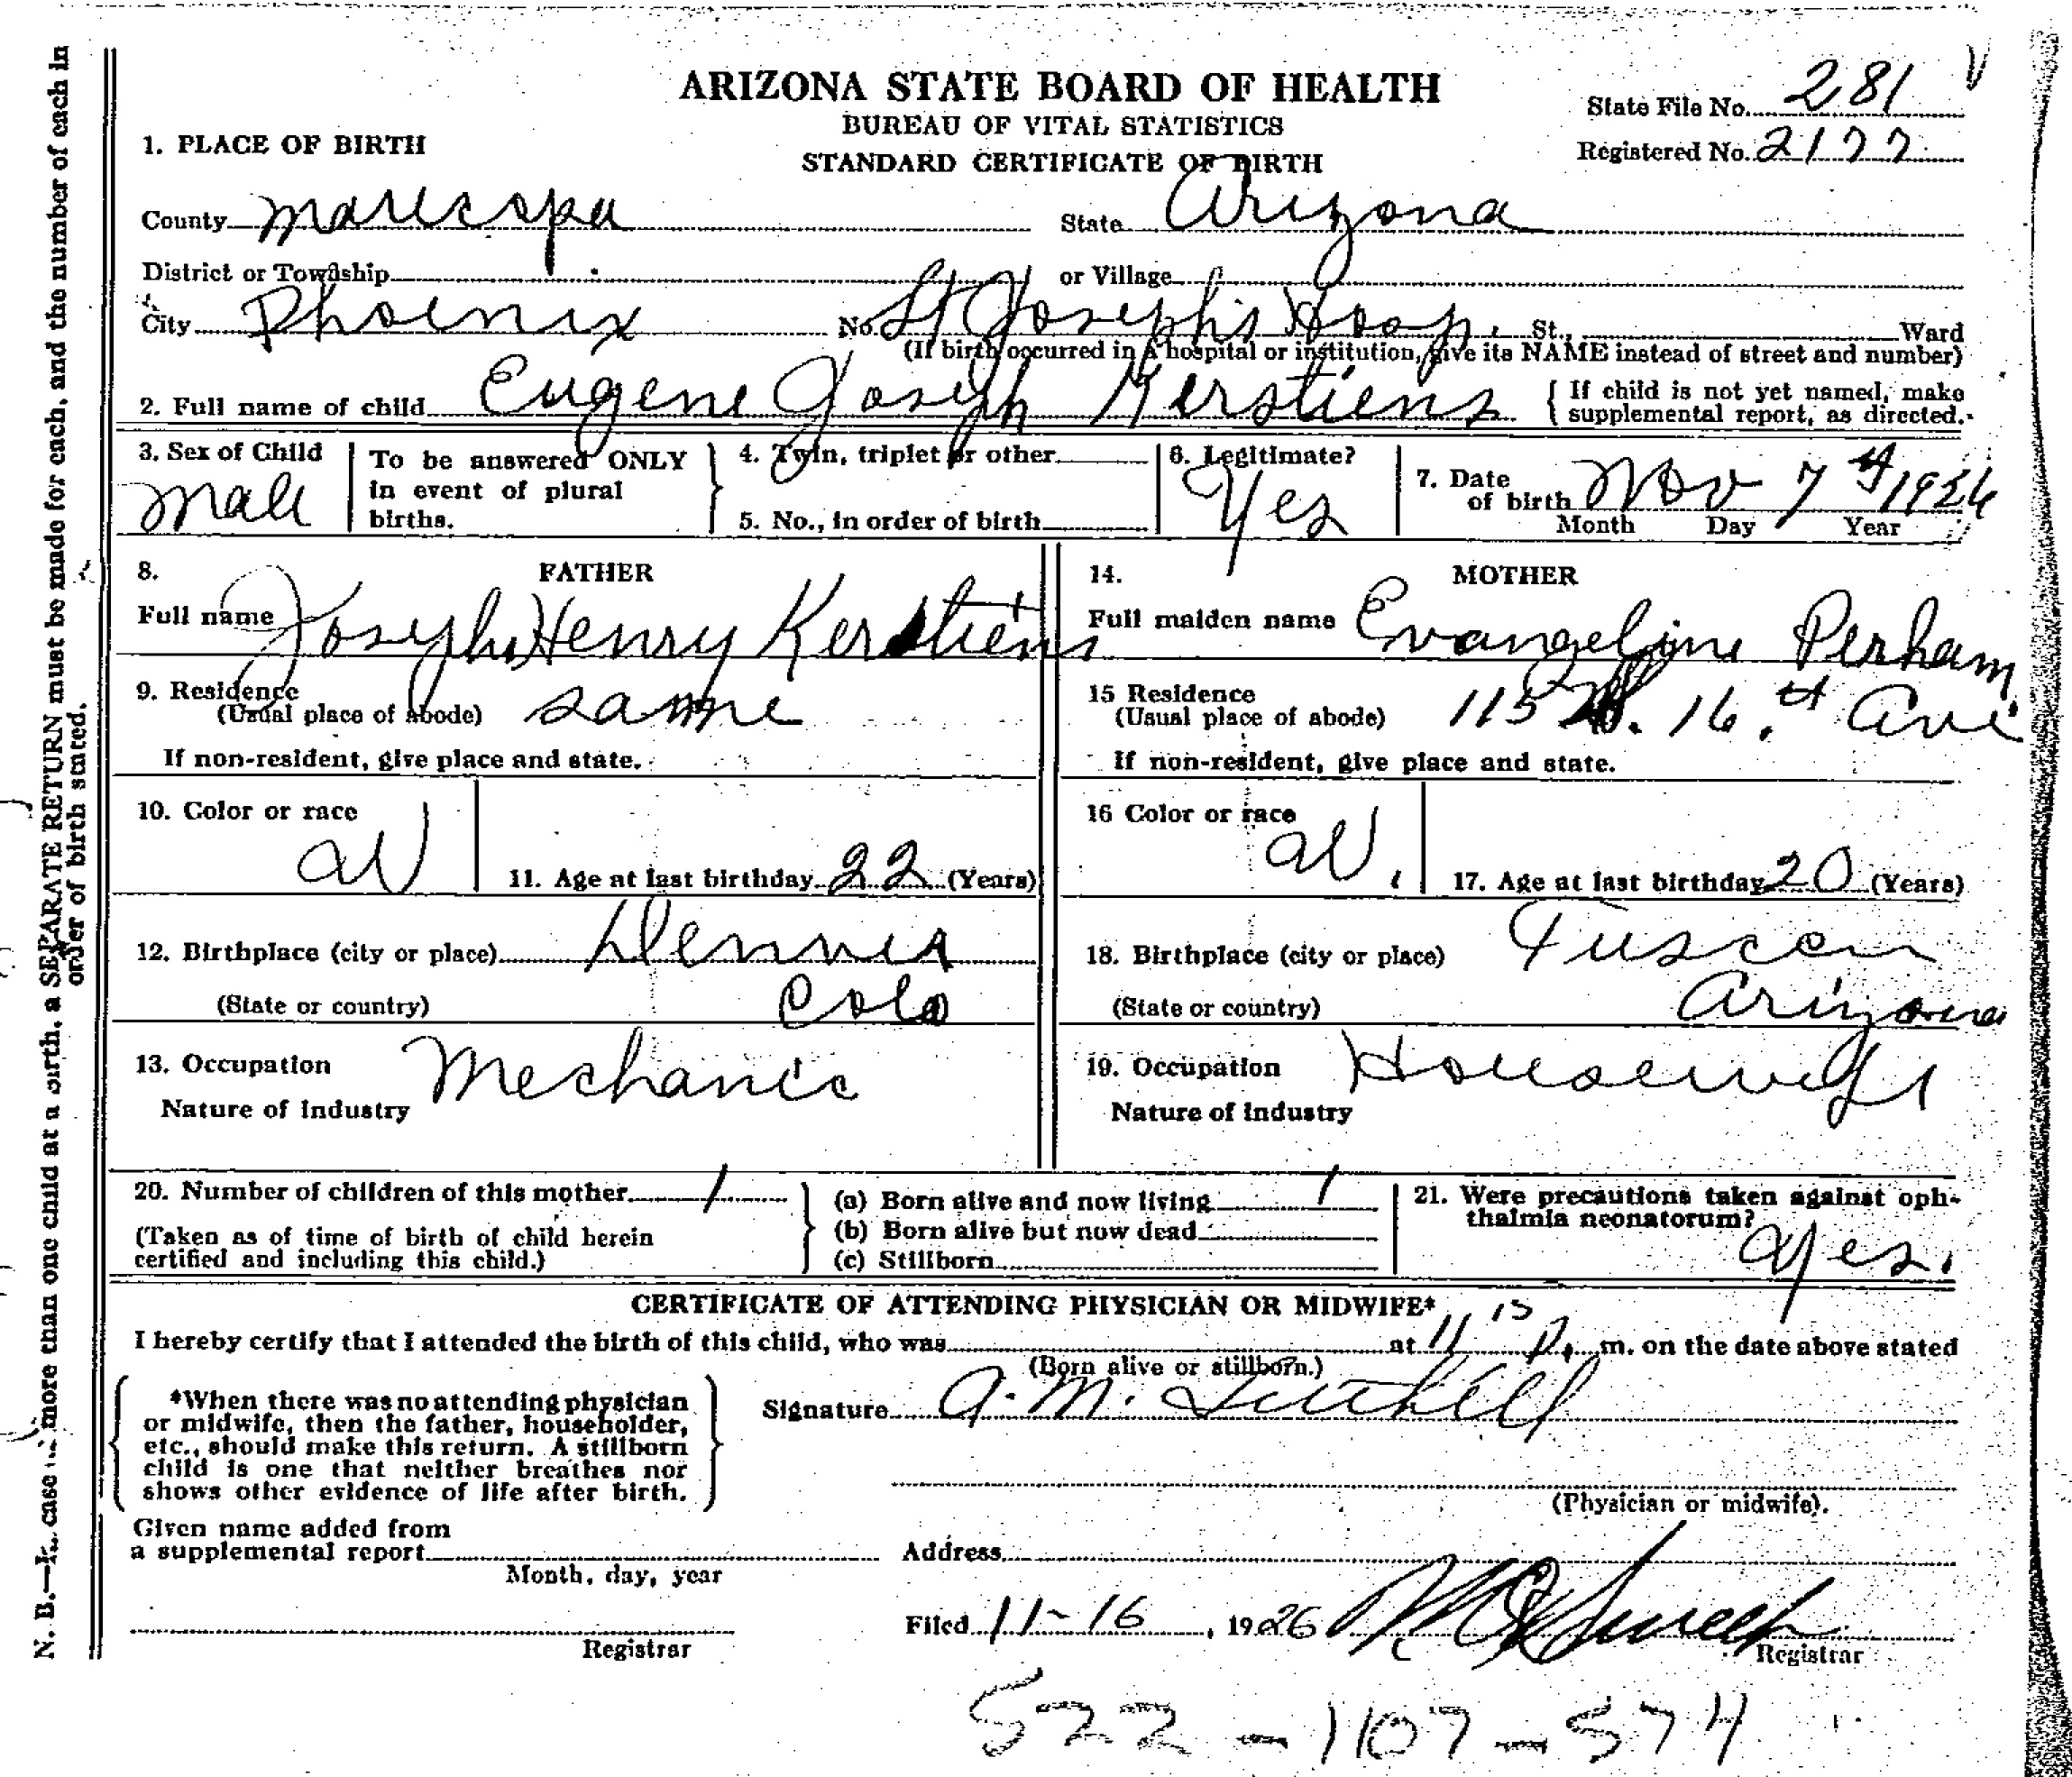 ARIZONA STATE BOARD OF HEALTH
BUREAU OF VITAL STATISTICS
STANDARD CERTIFICATE OF BIRTH
State File No. 281
Registered No. 2177
1. PLACE OF BIRTH
County Maricopa State Arizona
District or Township or Village
City Phoenix No. St Joseph's Hosp. St., Ward
(If birth occurred in a hospital or institution, give its NAME instead of street and number)
2. Full name of child Eugene Joseph Kerstiens { If child is not yet named, make supplemental report, as directed.
3. Sex of Child Male
To be answered ONLY in event of plural births.
4. Twin, triplet or other
5. No., in order of birth
6. Legitimate? Yes
7. Date of birth Nov 7th 1926
Month Day Year
8. FATHER
Full name Joseph Henry Kerstiens
9. Residence same
(Usual place of abode)
If non-resident, give place and state.
10. Color or race W
11. Age at last birthday 22 (Years)
12. Birthplace (city or place)
(State or country) Colo
13. Occupation Mechanic
Nature of Industry
14. MOTHER
Full maiden name Evangeline Perham
15 Residence 115 16.th Ave
(Usual place of abode)
If non-resident, give place and state.
16 Color or race W.
17. Age at last birthday 20 (Years)
18. Birthplace (city or place) Tuscon
(State or country) Arizona
19. Occupation Housewife
Nature of Industry
20. Number of children of this mother 1
(Taken as of time of birth of child herein
certified and including this child.)
(a) Born alive and now living 1
(b) Born alive but now dead
(c) Stillborn
21. Were precautions taken against oph-
thalmia neonatorum? Yes.
CERTIFICATE OF ATTENDING PHYSICIAN OR MIDWIFE*
I hereby certify that I attended the birth of this child, who was at 11 15 P. m. on the date above stated
(Born alive or stillborn.)
*When there was no attending physician
or midwife, then the father, householder,
etc., should make this return. A stillborn
child is one that neither breathes nor
shows other evidence of life after birth.
Signature A. M. Tuthill
(Physician or midwife).
Given name added from
a supplemental report
Month, day, year
Address
Filed 11-16, 1926
Registrar
Registrar
522-1107-574
N. B.—In case of more than one child at a birth, a SEPARATE RETURN must be made for each, and the number of each in
order of birth stated.